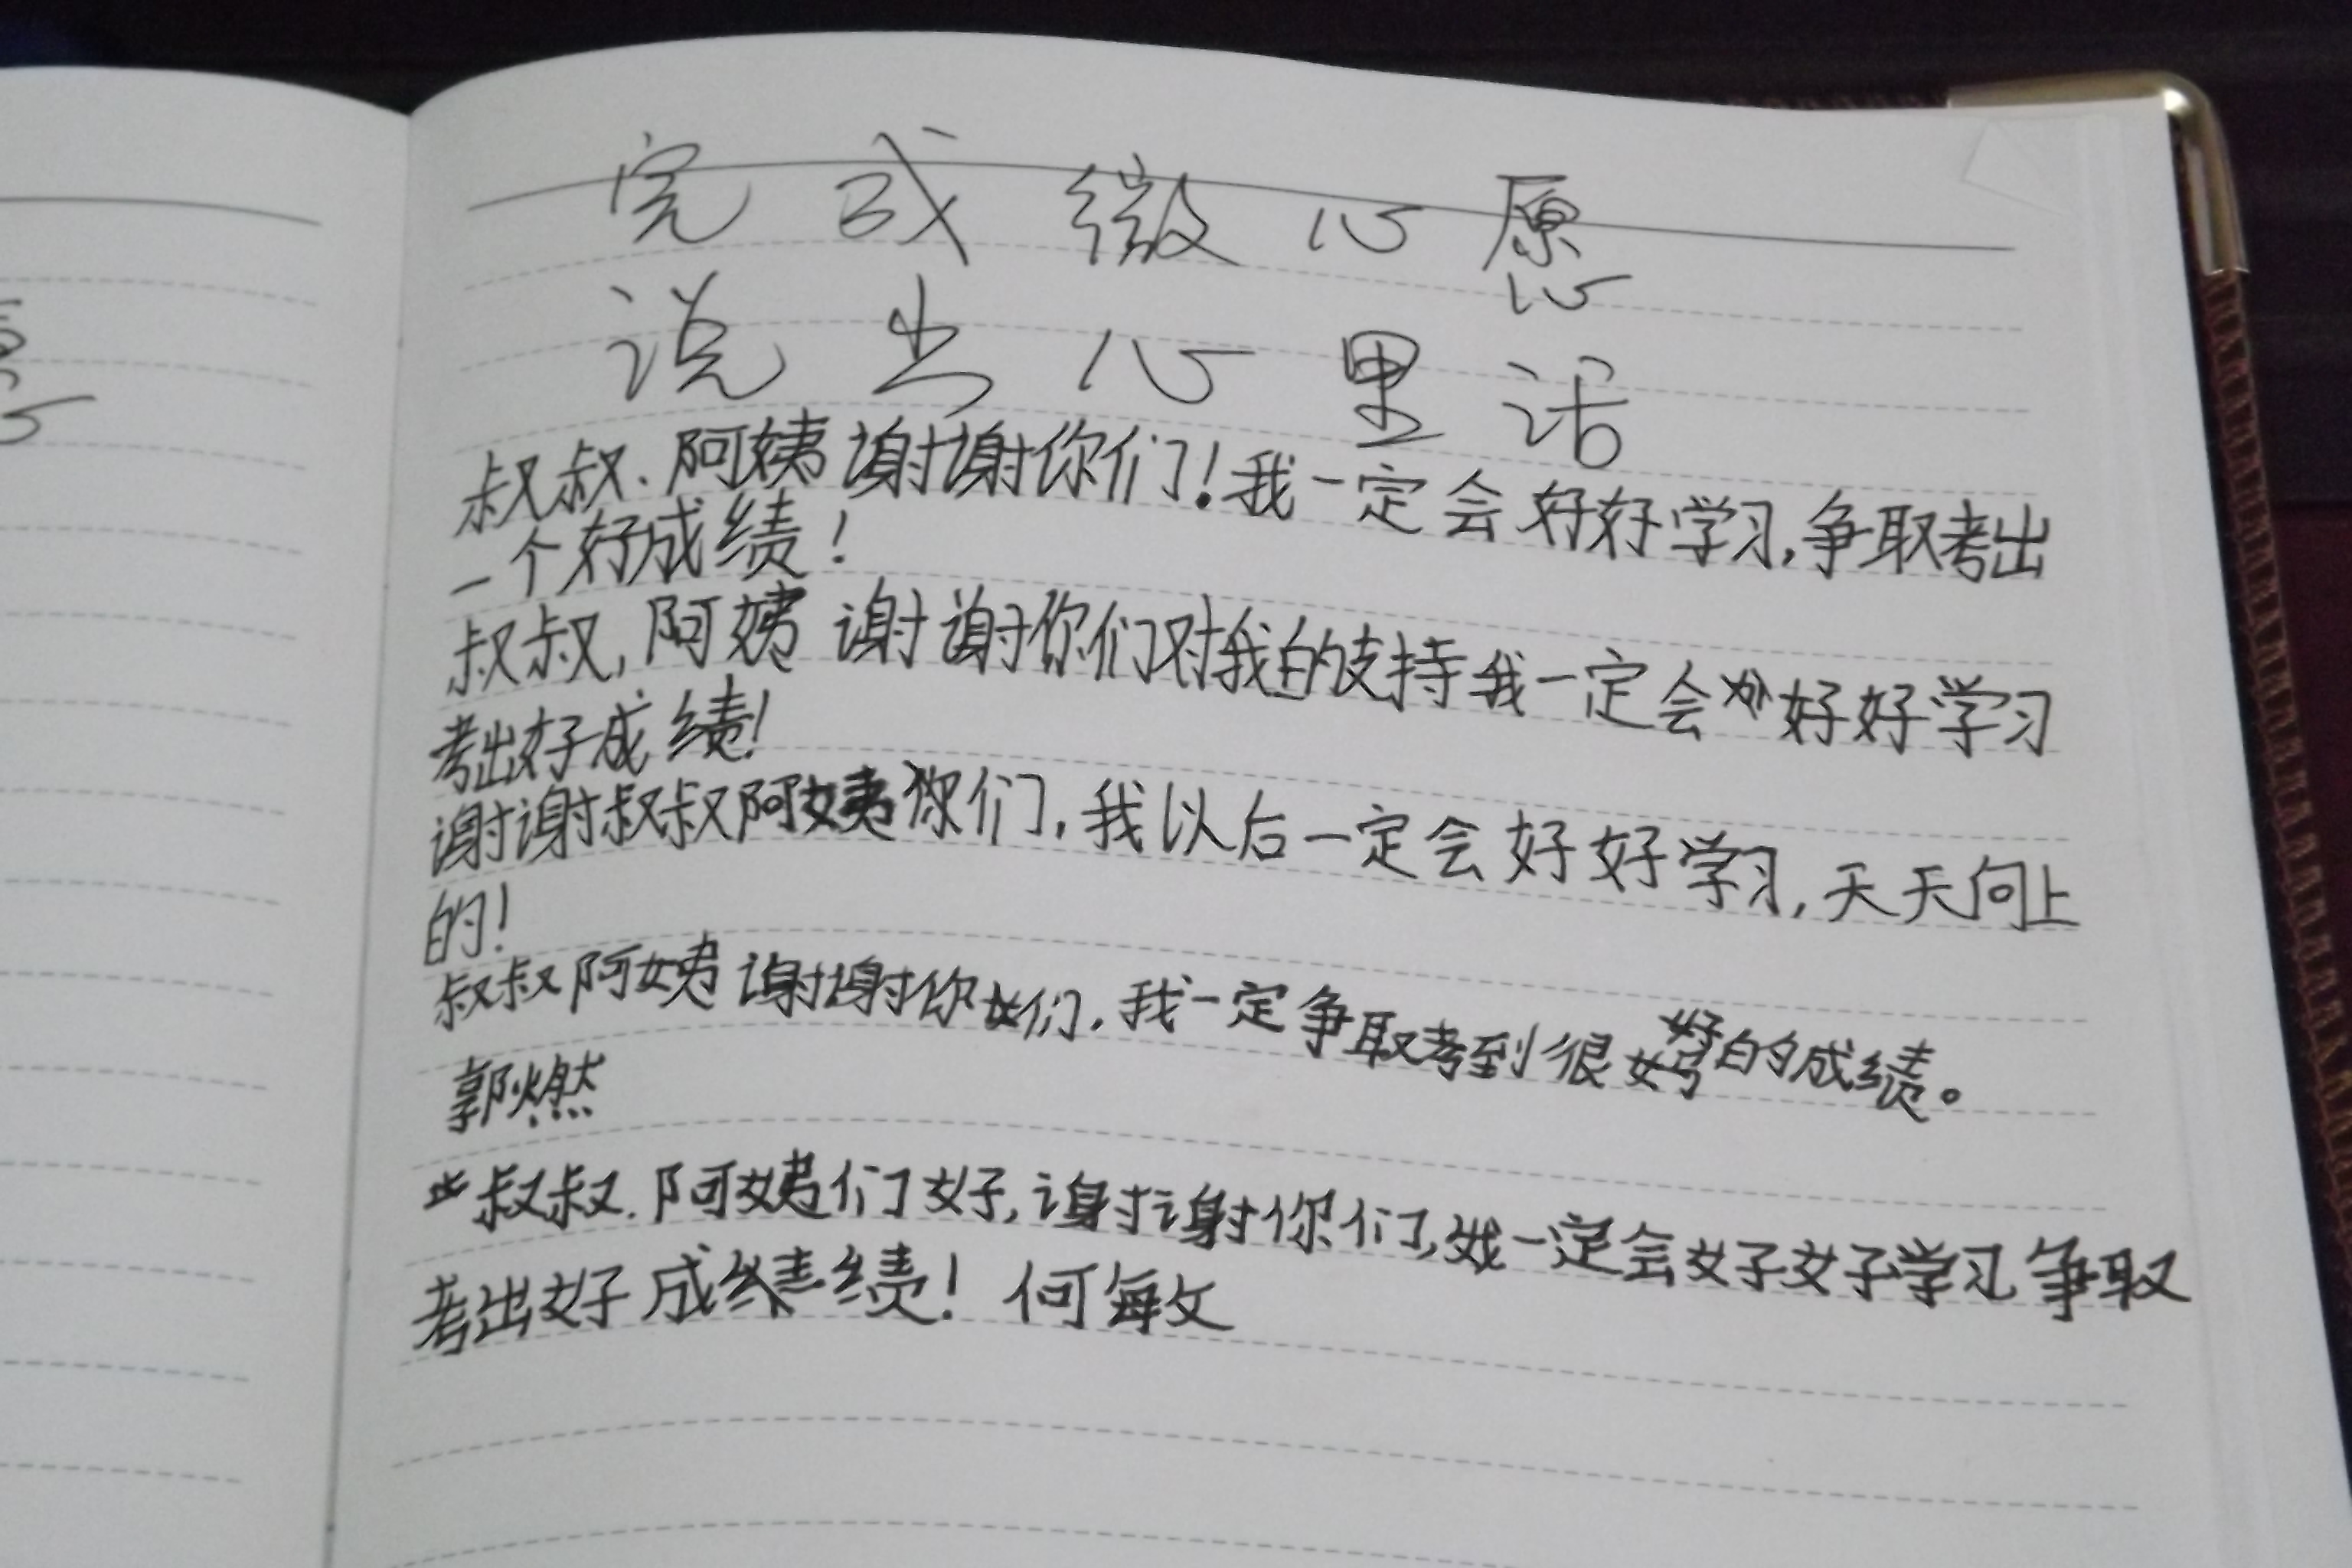 完成微心愿
说出心里话
叔叔.阿姨谢谢你们!我一定会好好学习,争取考出
一个好成绩!
叔叔,阿姨谢谢你们对我的支持我一定会好好学习
考出好成绩!
谢谢叔叔阿姨你们,我以后一定会好好学习,天天向上
的!
叔叔阿姨谢谢你们,我一定争取考到很好的成绩。
郭燃
叔叔.阿姨们好,谢谢你们,我一定会好好学习争取
考出好成绩!何每文